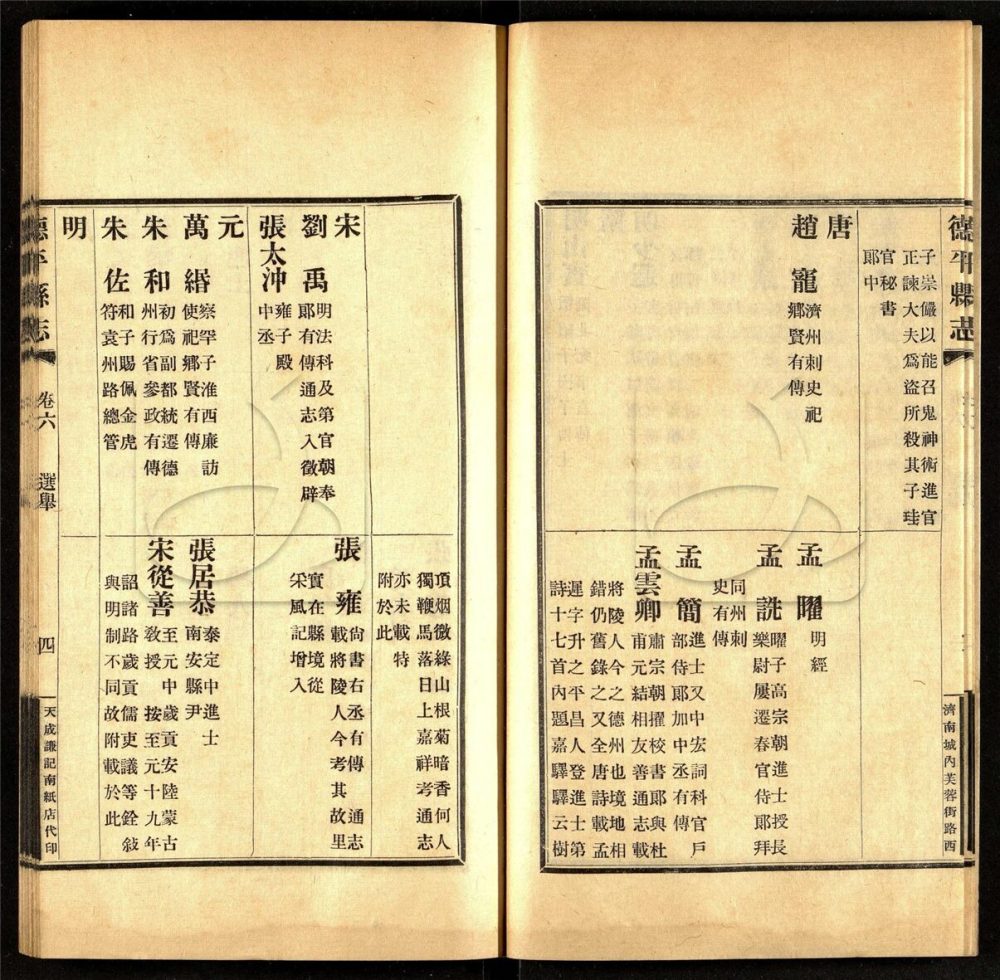 德平縣志
濟南城內芙蓉街路西
子崇儼以能召鬼神術進官
正諫大夫爲盜所殺其子珪
官秘書
郞中
唐
趙寵
濟州刺史祀
鄉賢有傳
孟曜
明經
孟詵
曜子高宗朝進士授長
樂尉屢遷春官侍郞拜
同州刺
史有傳
孟簡
進士又中宏詞科官戶
部侍郞加中丞有傳
孟雲卿
肅宗朝擢校書郞與杜
甫元結相友善通志載
將陵人今之德州也境地相
錯仍舊錄之又全唐詩載孟
遲字升之平昌人登進士第
詩十七首內題嘉驛驛云樹
頂烟微綠山根菊暗香何人
獨鞭馬落日上嘉祥考通志
亦未載特
附於此
宋
劉禹
明法科及第官朝奉
郞有傳通志入徵辟
張太沖
雍子殿
中丞
張雍
尙書右丞有傳 通志
載將陵人今考其故里
實在縣境從
采風記增入
元
萬緡
察罕子淮西廉訪
使祀鄉賢有傳
朱和
初爲副都統遷德
州行省參政有傳
朱佐
和子賜佩金虎
符袁州路總管
張居恭
泰定中進士
南安縣尹
宋從善
至元中歲貢安陸蒙古
敎授 按至元十九年
詔諸路歲貢儒吏議等銓敍
與明制不同故附載於此
明
德平縣志 卷六 選舉 四
天成謙記南紙店代印